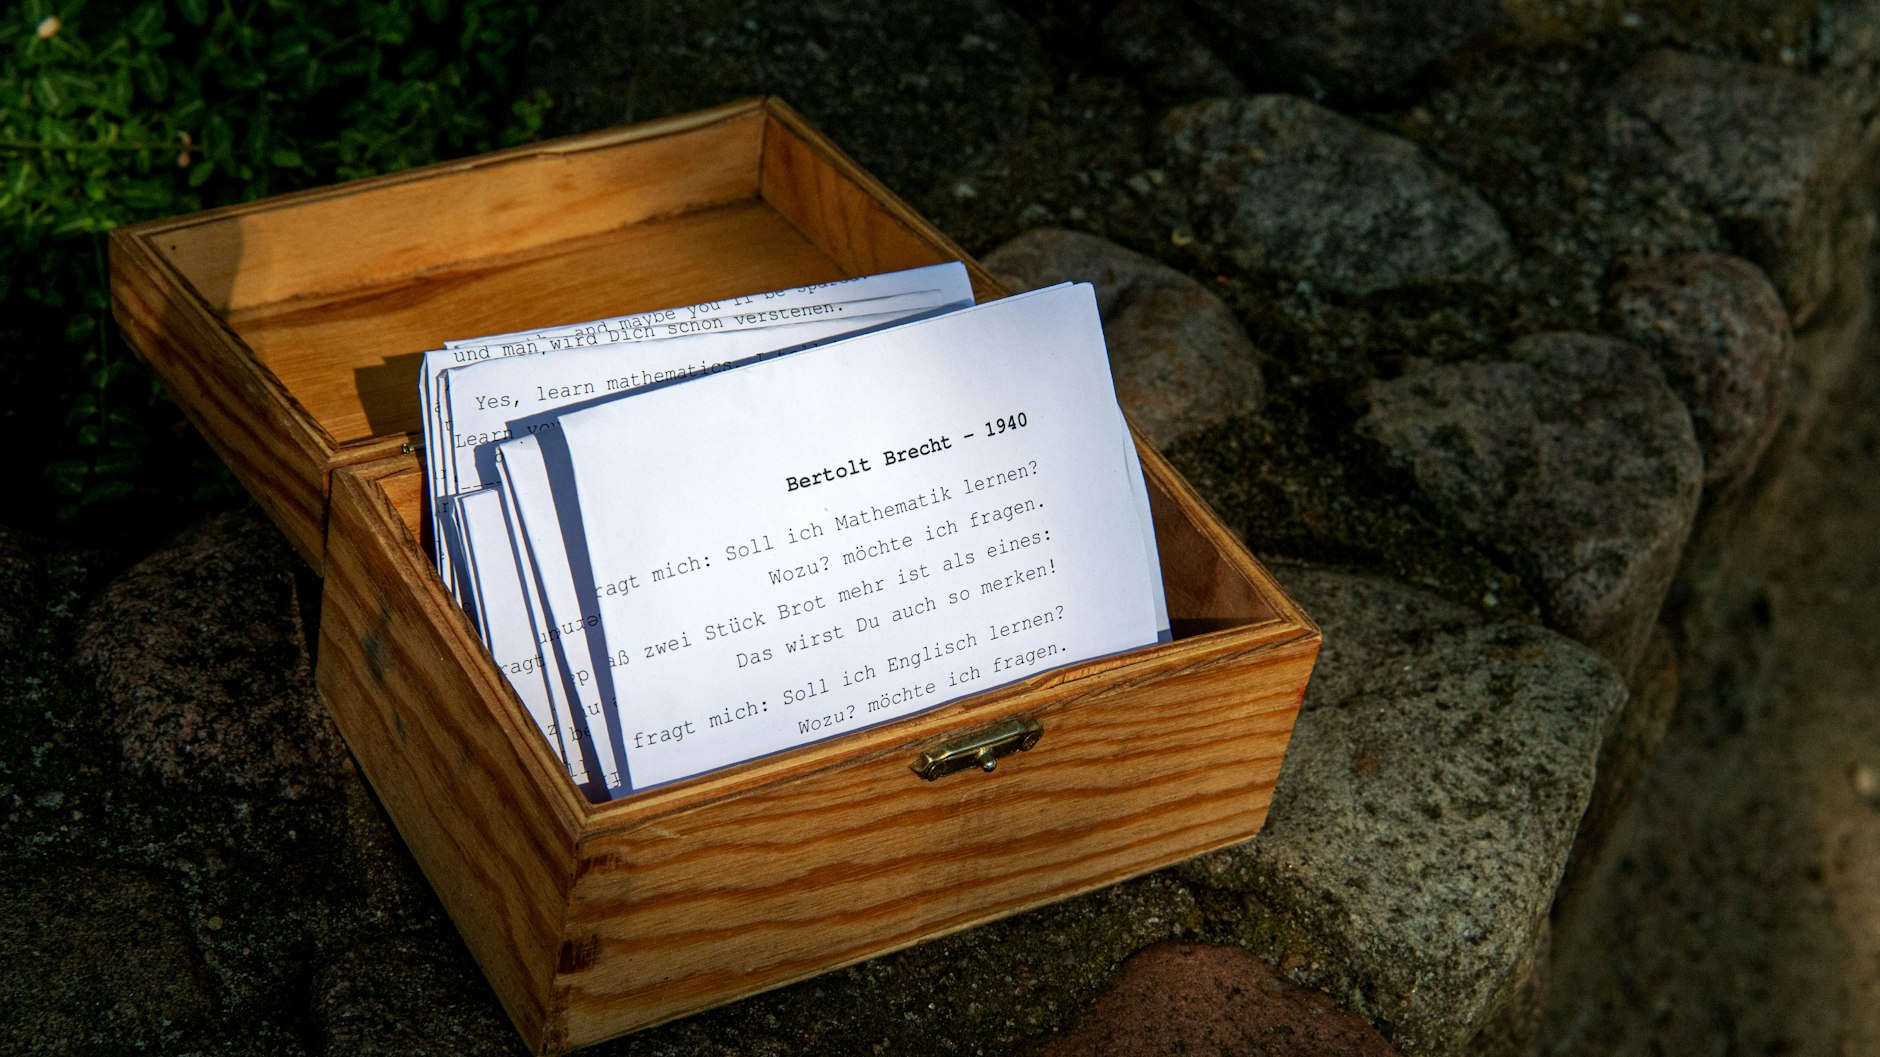 and maybe you'll be
und man wird Dich schon verstehen.
Yes, learn mathematics, I
Learn you
Bertolt Brecht - 1940
ragt mich: Soll ich Mathematik lernen?
Wozu? möchte ich fragen.
aß zwei Stück Brot mehr ist als eines:
Das wirst Du auch so merken!
fragt mich: Soll ich Englisch lernen?
Wozu? möchte ich fragen.
ragt